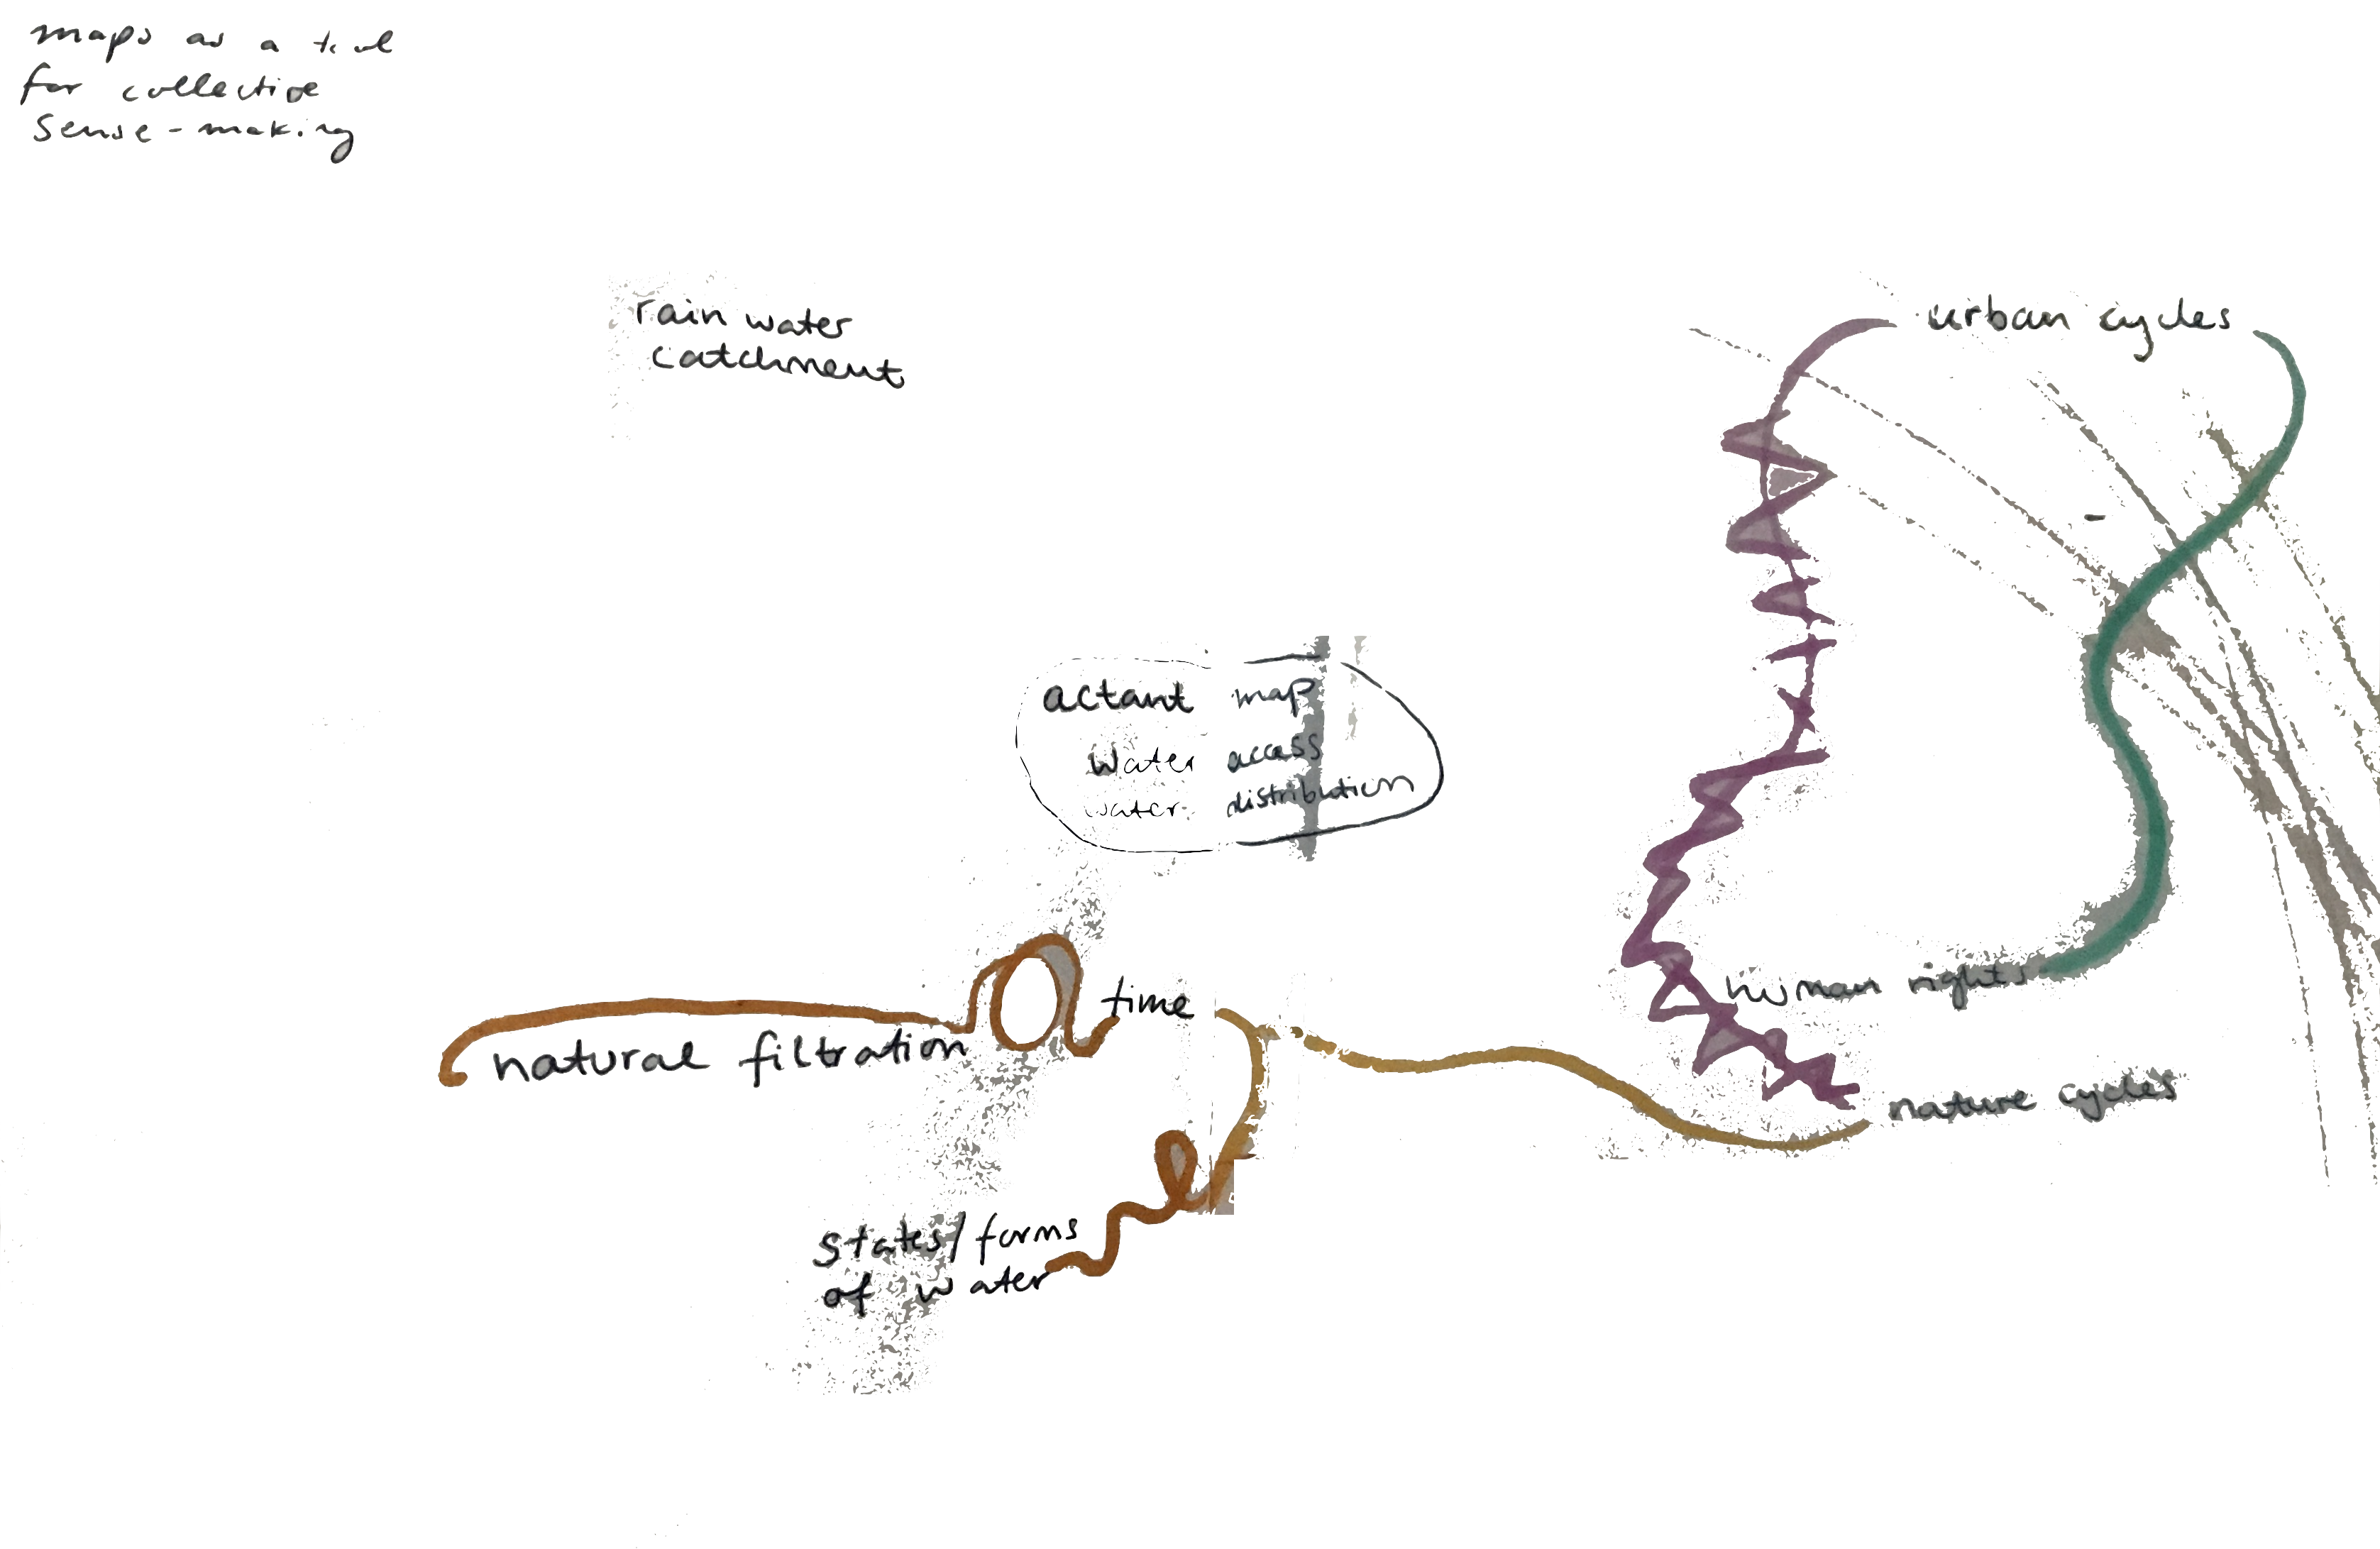 maps as a tool
for collective
sense-making
rain water
catchment
urban cycles
actant map
water access
water distribution
time
human rights
natural filtration
nature cycles
states/forms
of water